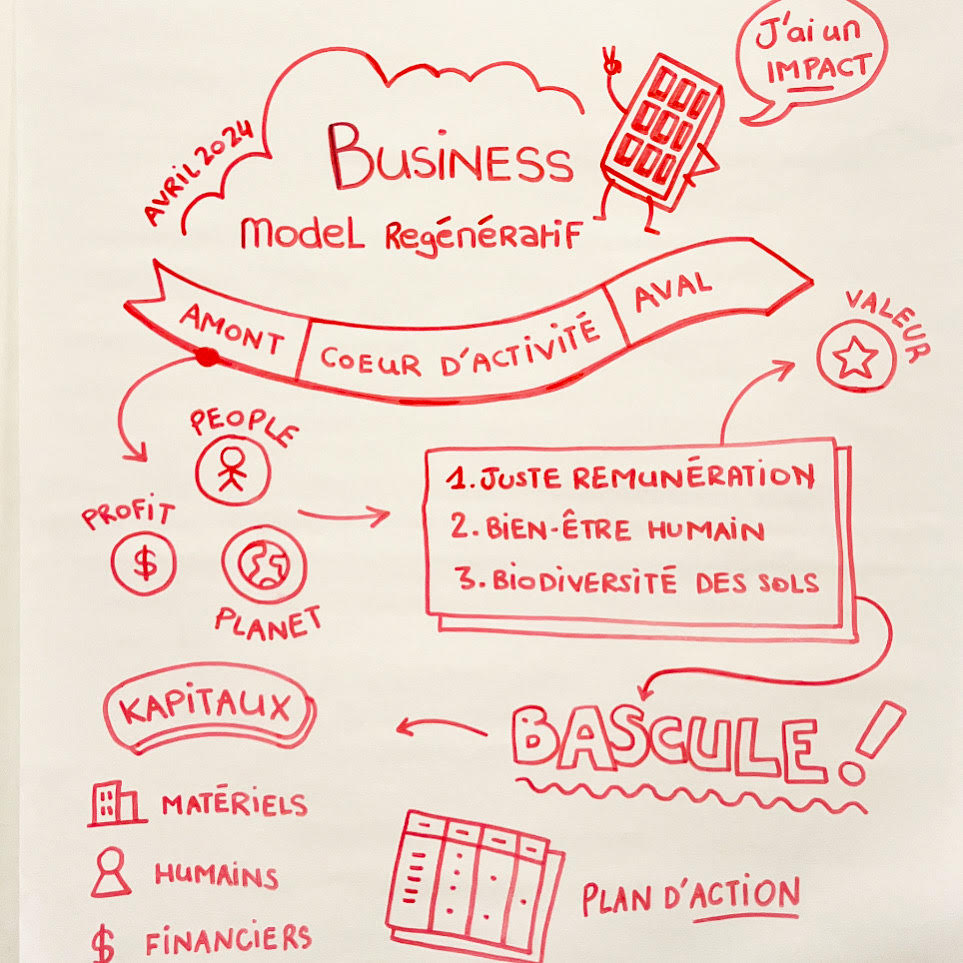 J'ai un
IMPACT
AVRIL 2024
BUSINESS
MODEL REGÉNÉRATIF
AMONT
COEUR D'ACTIVITÉ
AVAL
VALEUR
PEOPLE
PROFIT
$
PLANET
1. JUSTE REMUNÉRATION
2. BIEN-ÊTRE HUMAIN
3. BIODIVERSITÉ DES SOLS
BASCULE!
KAPITAUX
MATÉRIELS
HUMAINS
$ FINANCIERS
PLAN D'ACTION